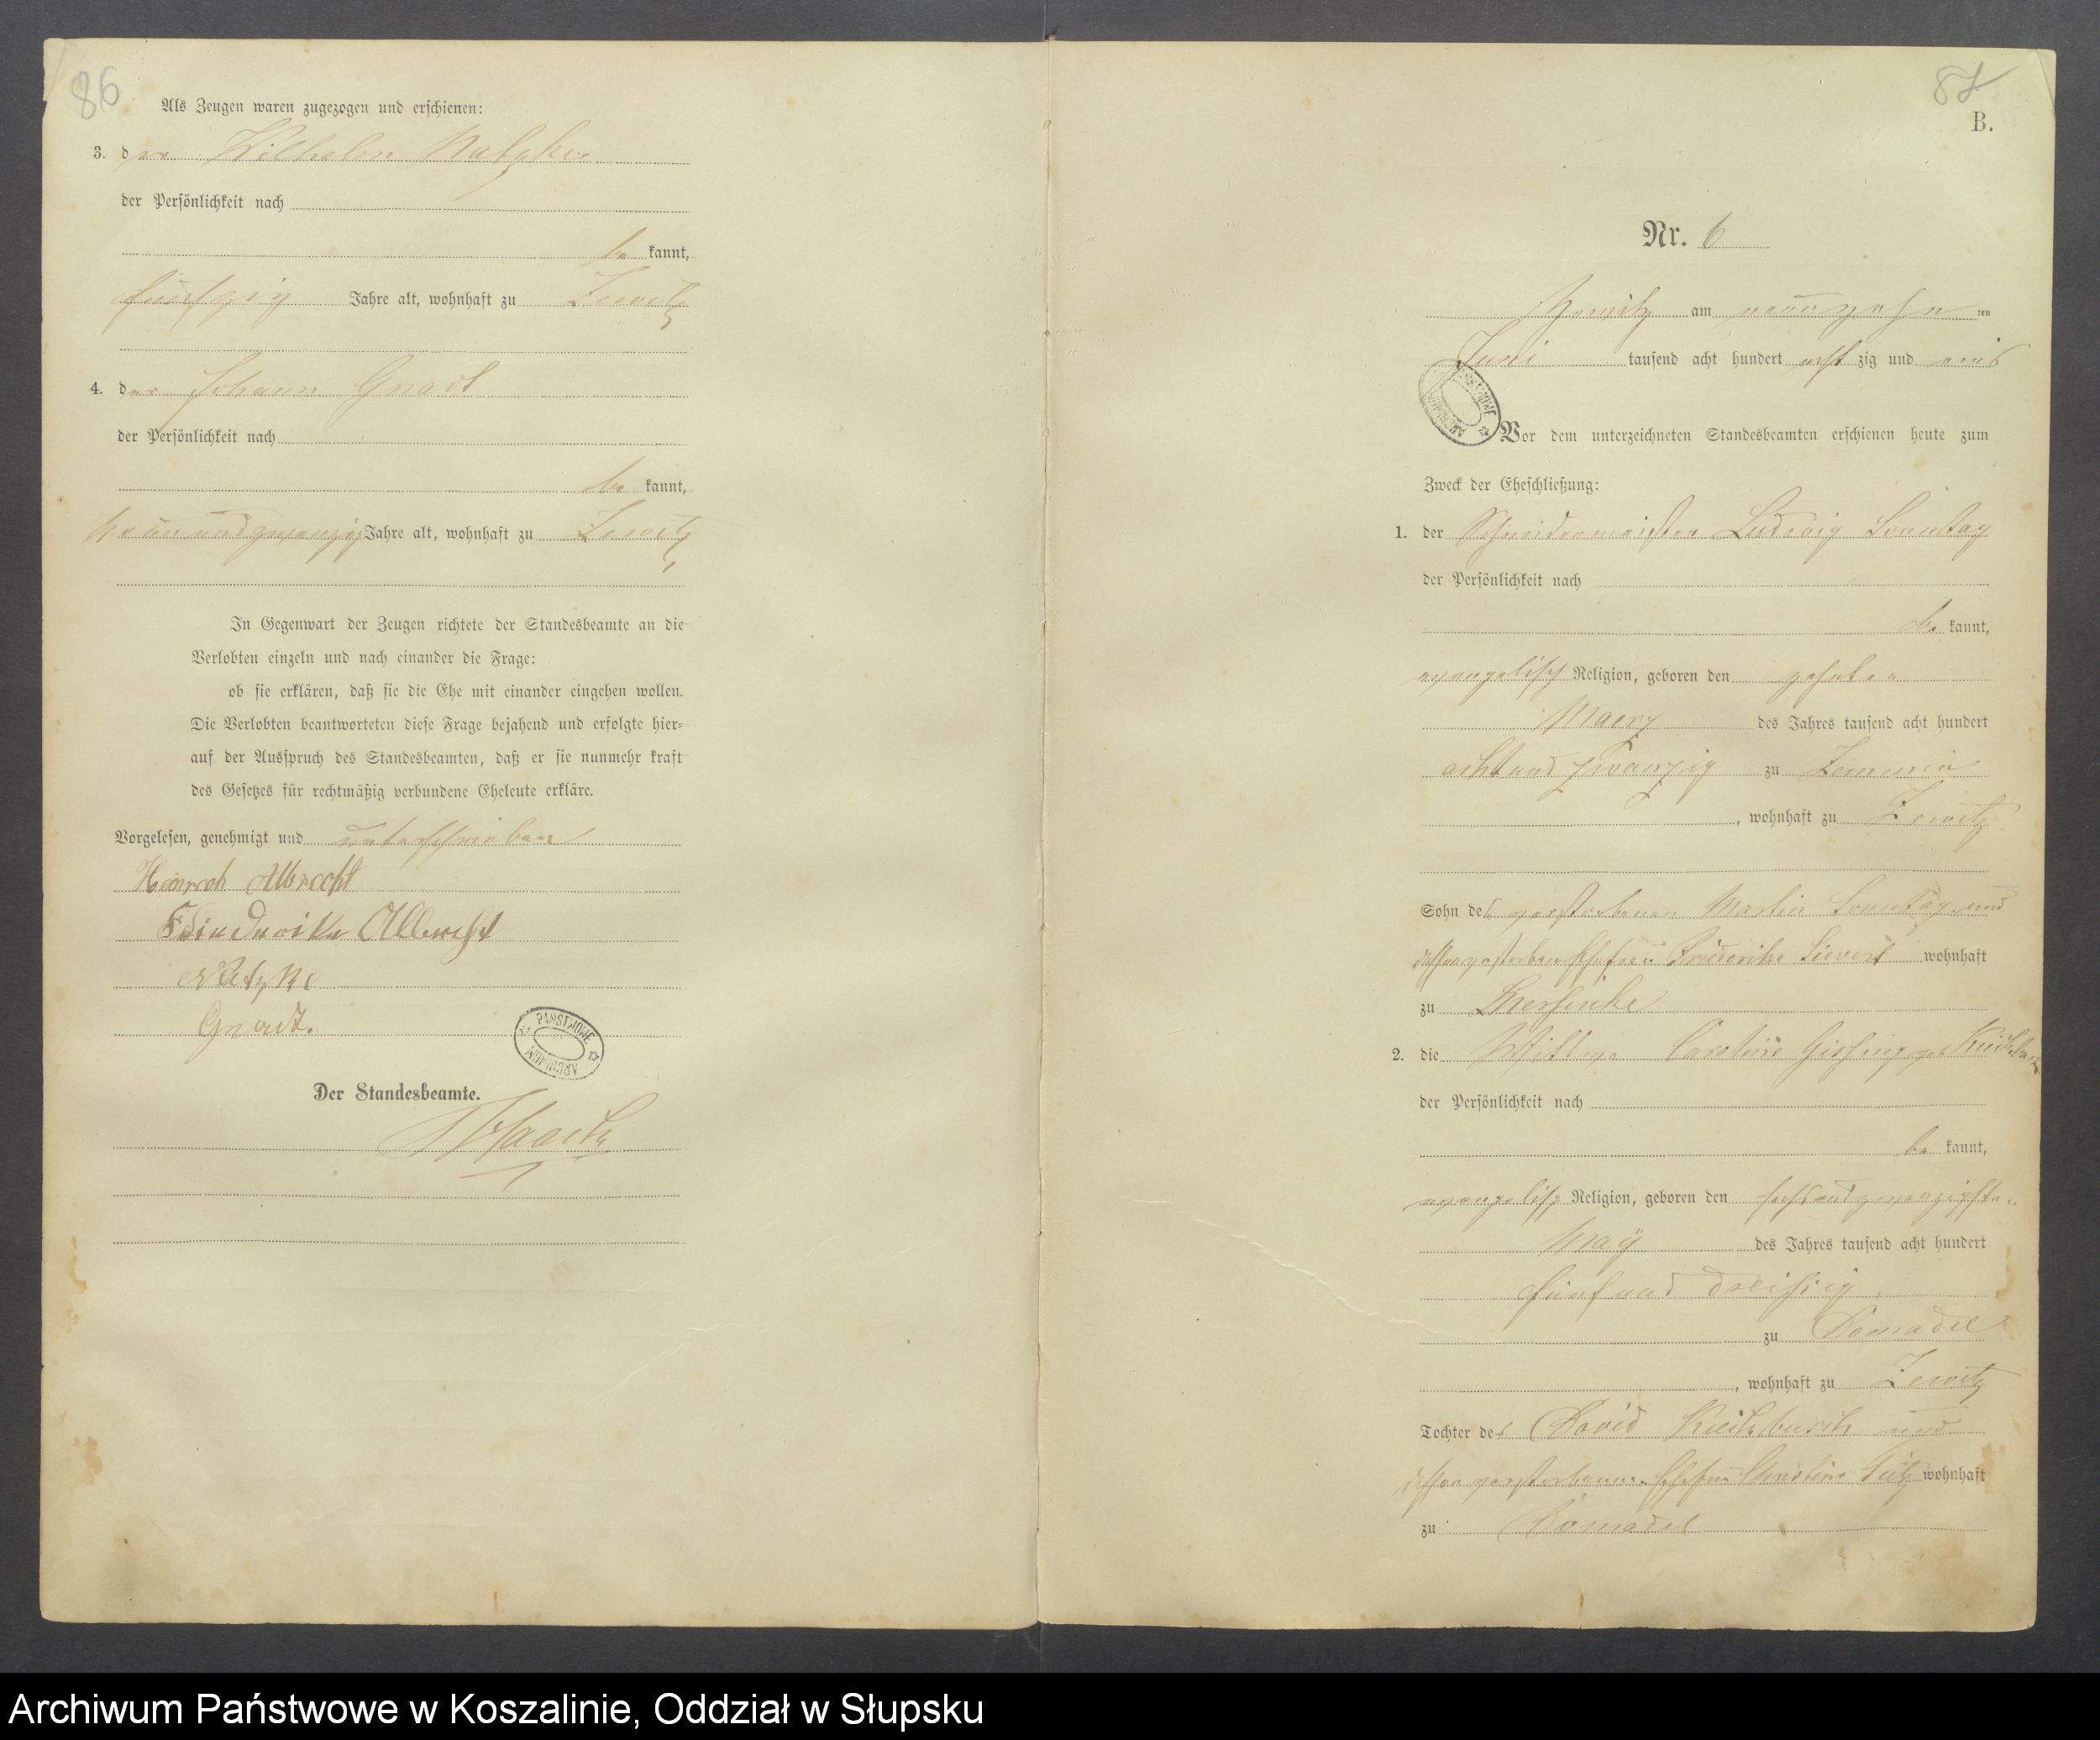 86
Als Zeugen waren zugezogen und erschienen:
3. der Wilhelm Natzke
der Persönlichkeit nach
be kannt,
fünfzig Jahre alt, wohnhaft zu Zewitz
4. der Johann Gnadt
der Persönlichkeit nach
be kannt,
neun und zwanzig Jahre alt, wohnhaft zu Zewitz
In Gegenwart der Zeugen richtete der Standesbeamte an die
Verlobten einzeln und nach einander die Frage:
ob sie erklären, daß sie die Ehe mit einander eingehen wollen.
Die Verlobten beantworteten diese Frage bejahend und erfolgte hier-
auf der Ausspruch des Standesbeamten, daß er sie nunmehr kraft
des Gesetzes für rechtmäßig verbundene Eheleute erkläre.
Vorgelesen, genehmigt und unterschrieben
Albrecht
Albrecht
Natzke
Gnadt.
ARCHIWUM PAŃSTWOWE
Der Standesbeamte.
87
B.
Nr. 6
Zewitz am neunzehn ten
Juni tausend acht hundert acht zig und eins
ARCHIWUM PAŃSTWOWE
Vor dem unterzeichneten Standesbeamten erschienen heute zum
Zweck der Eheschließung:
1. der Schneidermeister Ludwig Sonntag
der Persönlichkeit nach
be kannt,
evangelisch Religion, geboren den zehnten
Maerz des Jahres tausend acht hundert
acht und zwanzig zu
, wohnhaft zu Zewitz
Sohn des verstorbenen Martin Sonntag und
dessen verstorbene Ehefrau Friederike Sievert wohnhaft
zu
2. die Wittwe Caroline geb
der Persönlichkeit nach
be kannt,
evangelisch Religion, geboren den sechs und zwanzigsten
May des Jahres tausend acht hundert
fünf und dreißig
zu
, wohnhaft zu Zewitz
Tochter des David und
dessen verstorbenen Ehefrau Christine wohnhaft
zu
Archiwum Państwowe w Koszalinie, Oddział w Słupsku